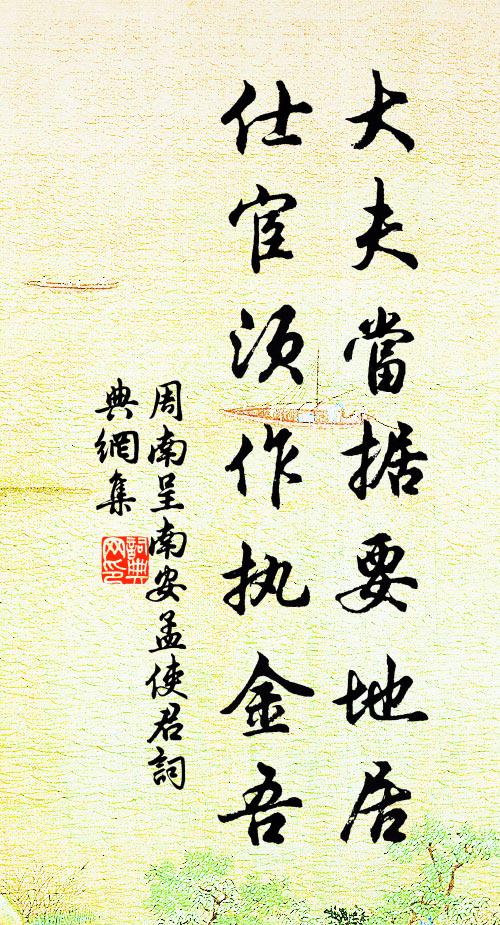 大夫當据要地居
仕宦須作执金吾
周南呈南安孟使君詞
典網集
詞典网印